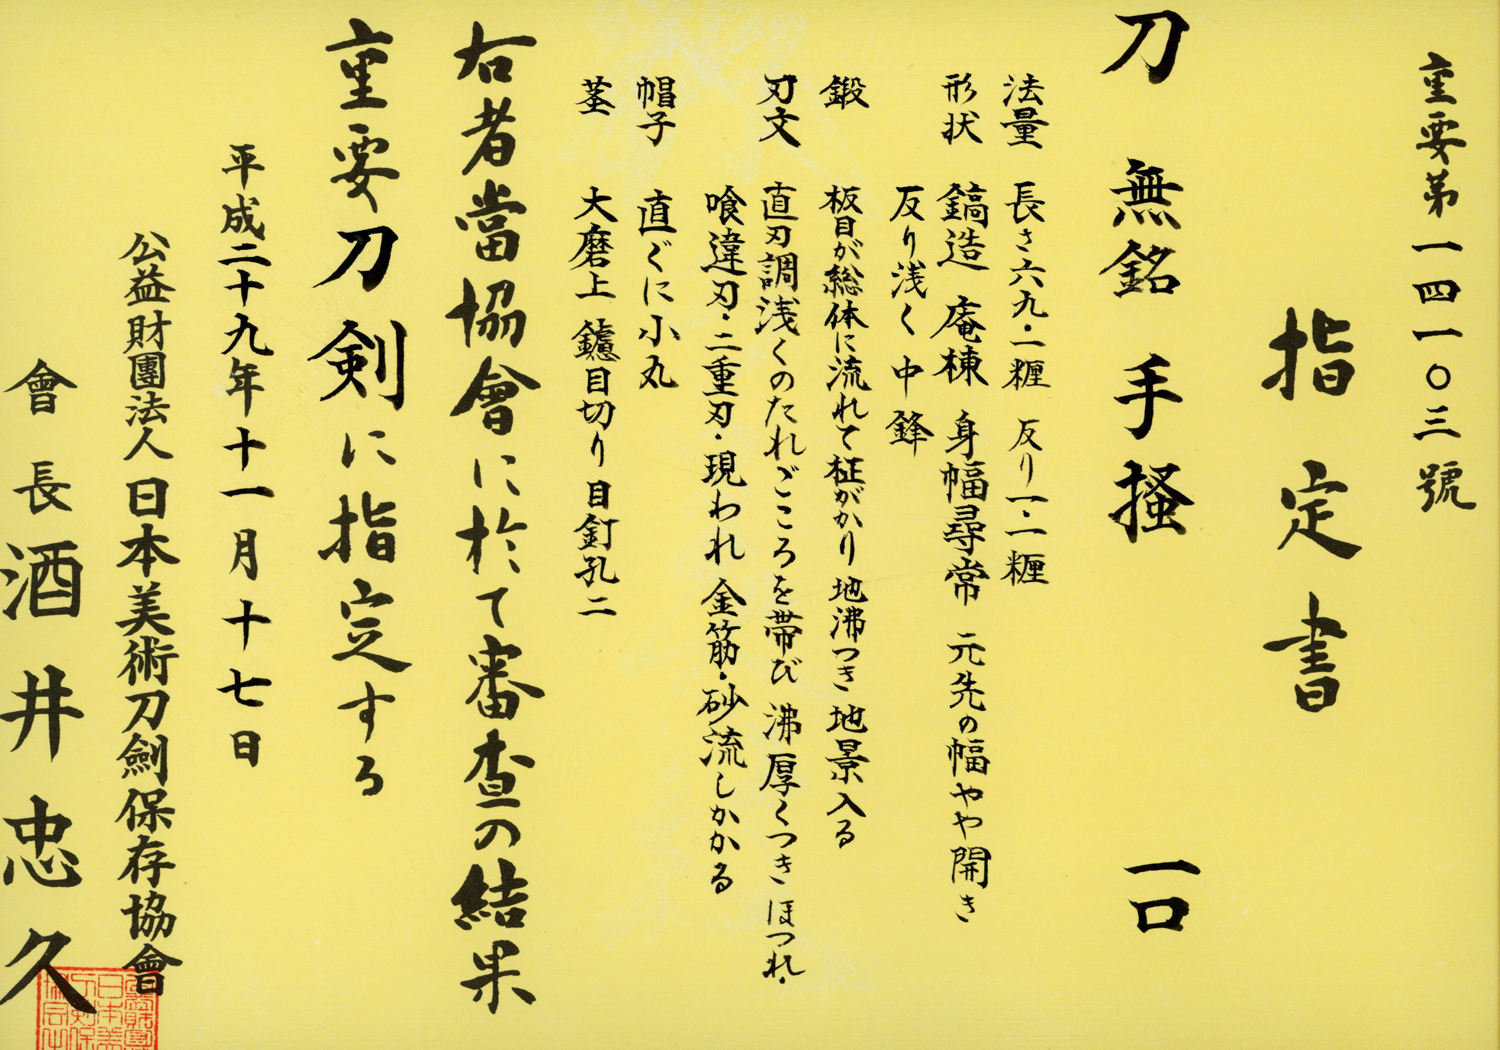 重要第一四一〇三號
指定書
刀 無銘 手掻 一口
法量 長さ六九・一糎 反り一・一糎
形状 鎬造 庵棟 身幅尋常 元先の幅やや開き
反り浅く 中鋒
鍛 板目が総体に流れて柾がかり 地沸つき 地景入る
刃文 直刃調浅くのたれごころを帯び 沸厚くつき ほつれ・
喰違刃・二重刃・現われ 金筋・砂流しかかる
帽子 直ぐに小丸
茎 大磨上 鑢目切り 目釘孔二
右者當協會に於て審査の結果
重要刀剣に指定する
平成二十九年十一月十七日
公益財團法人 日本美術刀劍保存協會
會長 酒井忠久